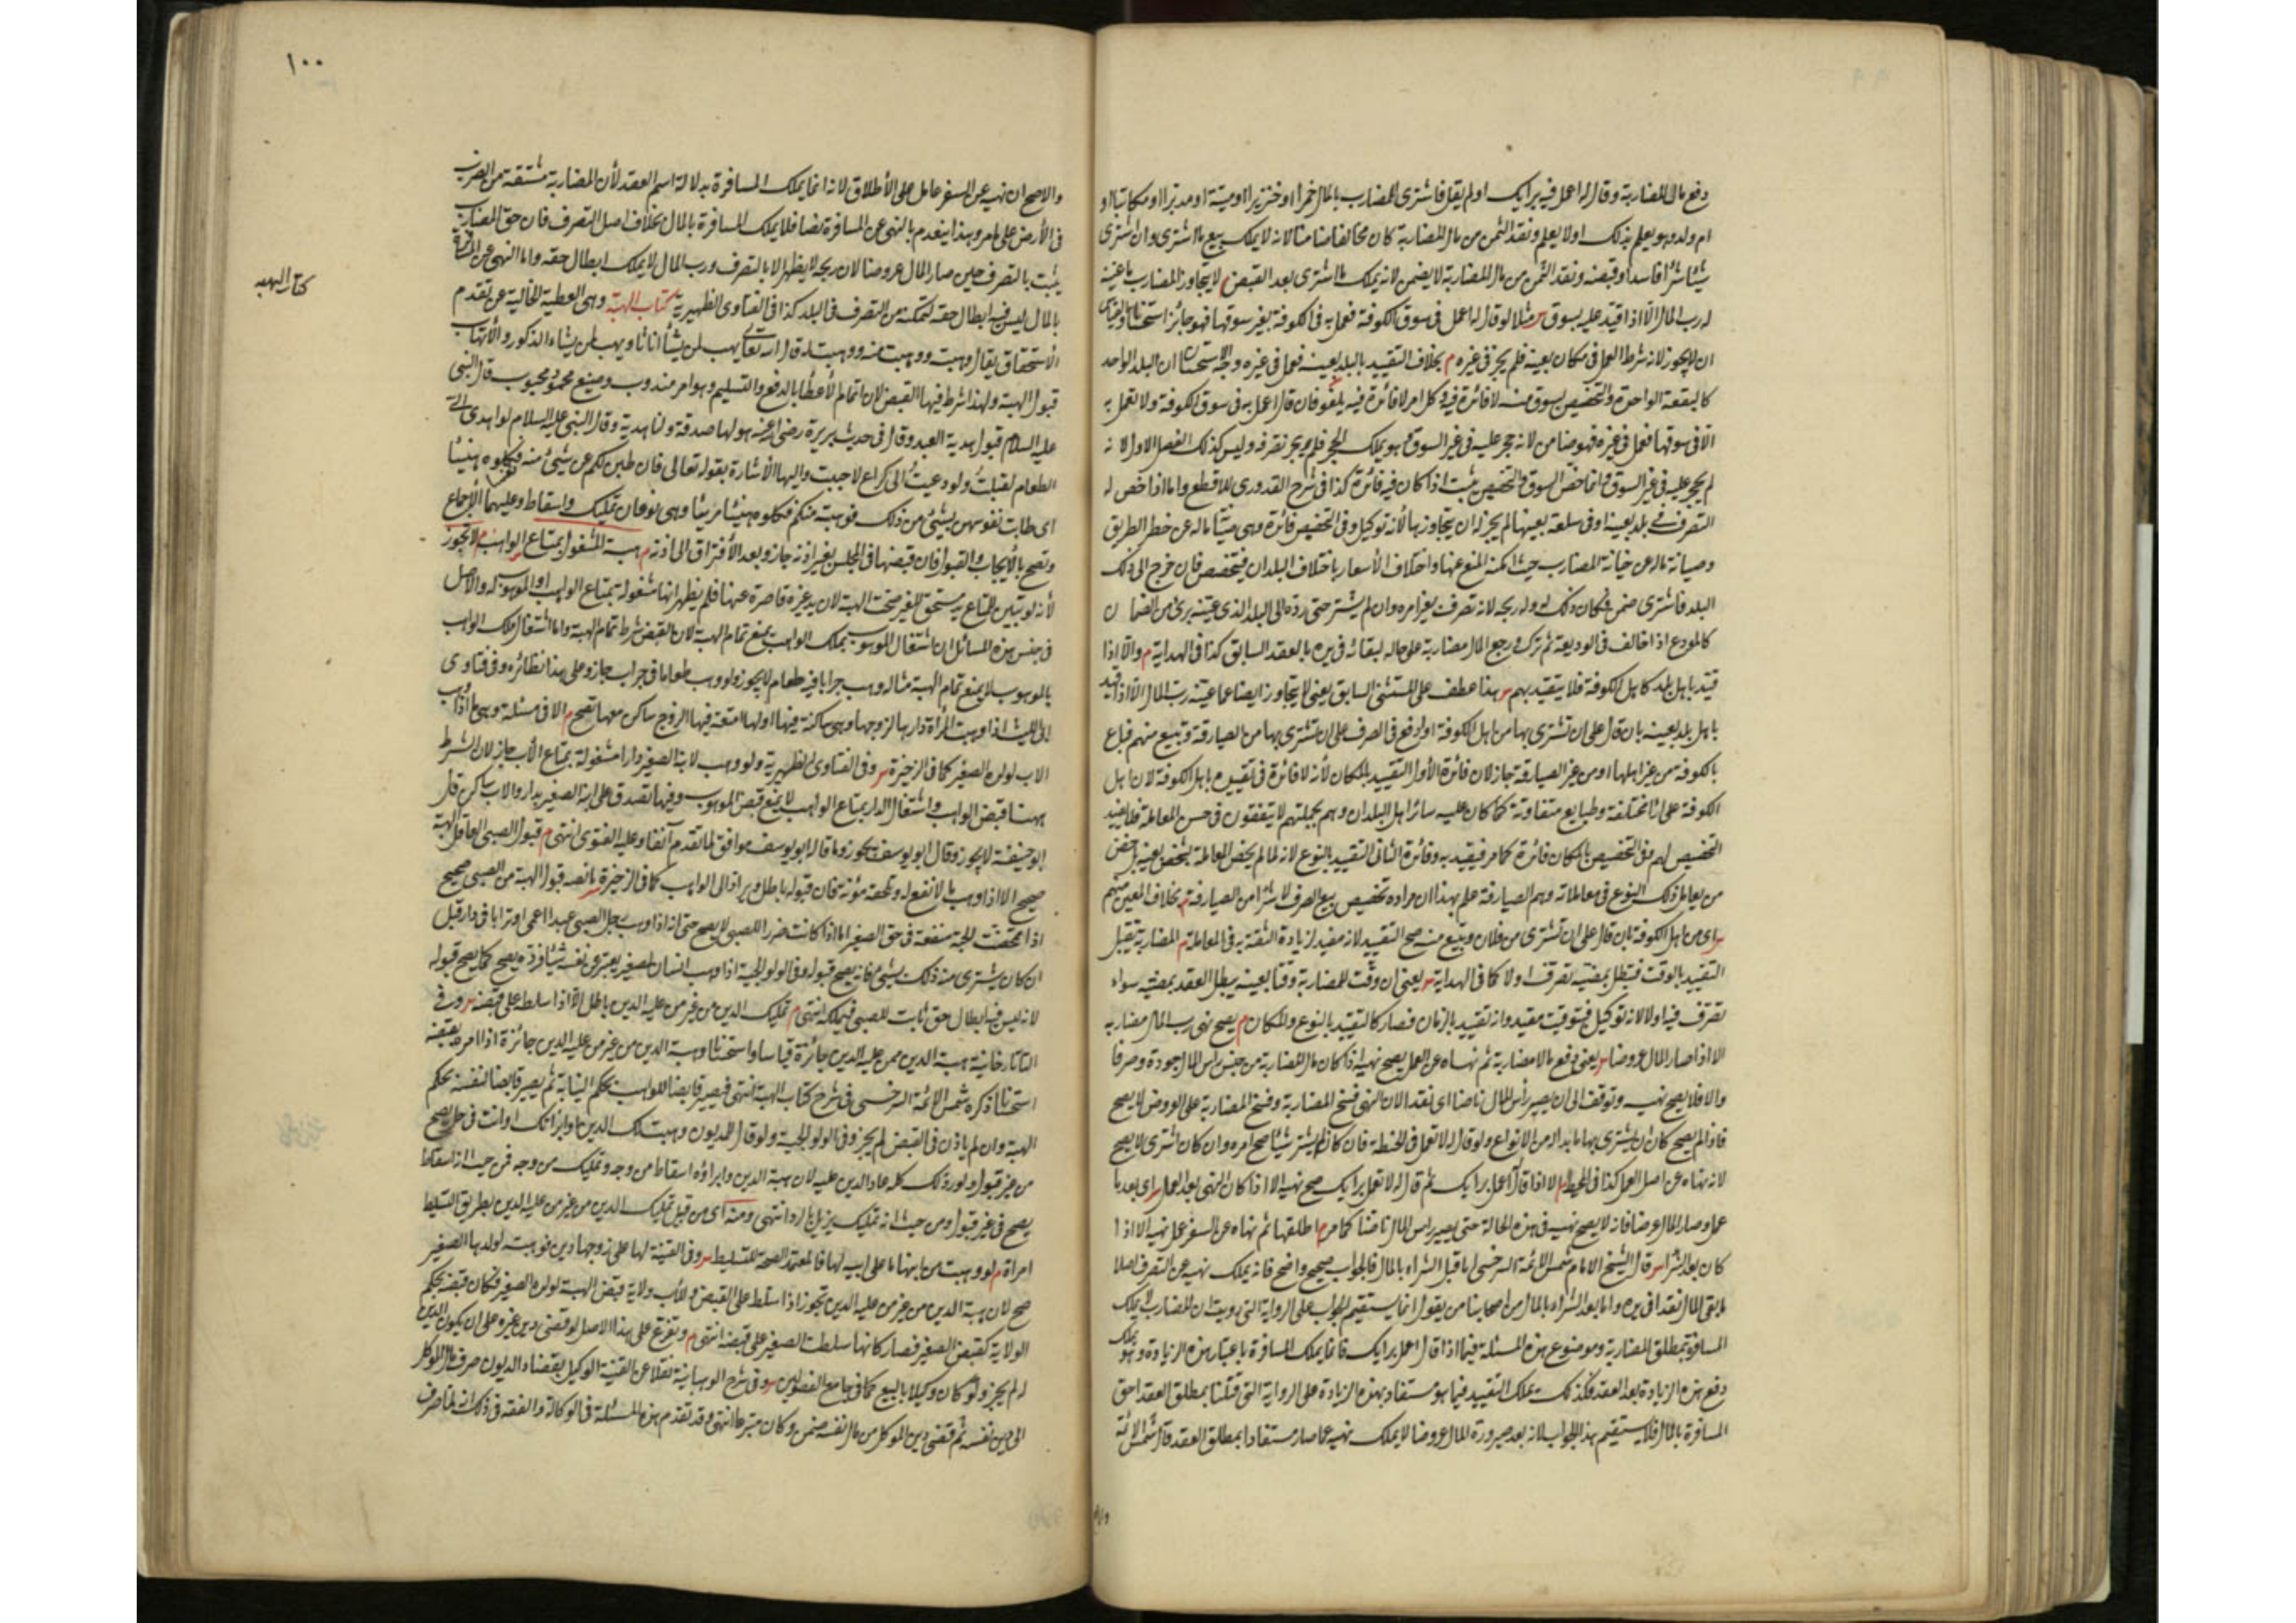 دفع مالا للمضاربة وقال له اعمل فيه برأيك او لم يقل فاشترى المضارب بالمال خمرا او خنزيرا او ميتة او مدبرا او مكاتبا او
ام ولد وهو يعلم بذلك اولا يعلم ونقد الثمن من مال المضاربة كان مخالفا ضامنا لانه لا يملك بيع ما اشترى وان اشترى
شيئا شراء فاسدا وقبضه ونقد الثمن من مال المضاربة لا يضمن لانه يملك ما اشترى بعد القبض م لا يتجاوز المضارب ما عينه
له رب المال الا اذا قيد عليه بسوق س مثلا لو قال له اعمل في سوق الكوفة فعمل به في الكوفة بغير سوقها فهو جائز استحسانا والقياس
ان لا يجوز لانه شرط العمل في مكان بعينه فلم يجز في غيره م بخلاف التقييد بالبلد بعينه فعمل في غيره وجه الاستحسان ان البلد الواحد
كالبقعة الواحدة والتخصيص بسوق منه لا فائدة فيه وكل امر لا فائدة فيه يلغو فان قال اعمل به في سوق الكوفة ولا تعمل به
الا في سوقها فعمل في غيره فهو ضامن لانه حجر عليه في غير السوق وهو يملك الحجر فلم يجز تصرفه وليس كذلك الفصل الاول لانه
لم يحجر عليه في غير السوق وانما خص السوق والتخصيص يثبت اذا كان فيه فائدة كذا في شرح القدوري للاقطع واما اذا خص له
التصرف في بلد بعينه او في سلعة بعينها لم يجز له ان يتجاوزها لأنه توكيل وفي التخصيص فائدة وهي صيانة ماله عن خطر الطريق
وصيانة ماله عن خيانة المضارب حيث امكنه المنع عنها واختلاف الأسعار باختلاف البلدان فيتخصص فان خرج الى ذلك
البلد فاشترى ضمن فكان ذلك له وله ربحه لانه تصرف بغير امره وان لم يشتر حتى رده الى البلد الذي عينه برئ من الضمان
كالمودع اذا خالف في الوديعة ثم ترك ورجع المال مضاربة على حاله لبقائه في يده بالعقد السابق كذا في الهداية م والا اذا
قيد باهل بلد كاهل الكوفة فلا يتقيد بهم س هذا عطف على المستثنى السابق يعني لا يتجاوز ايضا عما عينه رب المال الا اذا قيد
باهل بلد بعينه بان قال على ان تشترى بها من اهل الكوفة او دفع في الصرف على ان تشترى بها من الصيارفة وتبيع منهم فباع
بالكوفة من غير اهلها او من غير الصيارفة جاز لان فائدة الأول التقييد بالمكان لأنه لا فائدة في تقييده باهل الكوفة لان اهل
الكوفة على اراء مختلفة وطبايع متفاوتة كما كان عليه سائر اهل البلدان وهم بجملتهم لا يتفقون في حسن المعاملة فلا يفيد
التخصيص لهم وفي التخصيص بالمكان فائدة كما مر فيتقيد به وفائدة الثاني التقييد بالنوع لانه لما لم يخص المعاملة بشخص بعينه بل خص
من يعامل ذلك النوع في معاملاته وهم الصيارفة علم بهذا ان مراده تخصيص بيع الصرف لا شراء من الصيارفة م بخلاف المعين منهم
س اى من اهل الكوفة بان قال على ان تشترى من فلان وتبيع منه صح التقييد لانه مفيد لزيادة الثقة به في المعاملة م المضاربة تقبل
التقييد بالوقت فتبطل بمضيه تصرف اولا كما في الهداية س يعني ان وقت للمضاربة وقتا بعينه يبطل العقد بمضيه سواء
تصرف فيه اولا لانه توكيل فيتوقت بما وقته والتوقيت مقيد وانه تقييد بالزمان فصار كالتقييد بالنوع والمكان م يصح نهى رب المال مضاربه
الا اذا صار المال عروضا س يعني دفع مالا مضاربة ثم نهاه عن العمل يصح نهيه اذا كان مال المضاربة من جنس رأس المال جودة وصرفا
والا فلا يصح نهيه ويتوقف الى ان يصير رأس المال ناضا اى نقدا لان النهى فسخ المضاربة وفسخ المضاربة على العروض لا يصح
لانه نهاه عن اصل العمل كذا في المحيط م الا اذا قال اعمل برأيك ثم قال له لا تعمل برأيك صح نهيه الا اذا كان النهى بعد العمل س اى بعد ما
عمل وصار المال عروضا فانه لا يصح نهيه في هذه الحالة حتى يصير رأس المال ناضا كما مر م اطلقها ثم نهاه عن السفر عمل نهيه الا اذا
كان بعد الشراء س قال الشيخ الامام شمس الائمة السرخسي اما قبل الشراء بالمال فالجواب صحيح واضح فانه يملك نهيه عن التصرف اصلا
ما بقي المال نقدا في يده واما بعد الشراء بالمال من اصحابنا من يقول انما يستقيم الجواب على الرواية التي رويت ان المضارب لا يملك
المسافرة بمطلق المضاربة وموضوع هذه المسئلة فيما اذا قال اعمل برأيك فانما يملك المسافرة باعتبار هذه الزيادة وهو يملك
رفع هذه الزيادة بعد العقد فكذلك يملك التقييد فيما هو مستفاد بهذه الزيادة على الرواية التي قلنا بمطلق العقد احق
المسافرة بالمال فلا يستقيم هذا الجواب لانه بعد صيرورة المال عروضا لا يملك نهيه عما صار مستفادا بمطلق العقد قال شمس الائمة
١٠٠
كتاب الهبه
والاصح ان نهيه عن السفر عامل على الأطلاق لانه انما يملك المسافرة بدلالة اسم العقد لأن المضاربة مشتقة من الضرب
في الأرض على ما مر وهذا ينعدم بالنهى عن المسافرة نصا فلا يملك المسافرة بالمال بخلاف اصل التصرف فان حق المضارب
يثبت بالتصرف حين صار المال عروضا لان ربحه لا يظهر الا بالتصرف ورب المال لا يملك ابطال حقه واما النهى عن المسافرة
بالمال ليس فيه ابطال حقه لتمكنه من التصرف في البلد كذا في الفتاوى الظهيرية كتاب الهبة وهي العطية الخالية عن تقدم
الأستحقاق يقال وهبت ووهبت منه ووهبت له قال الله تعالى يهب لمن يشأ اناثا ويهب لمن يشاء الذكور والأتهاب
قبول الهبة ولهذا شرط فيها القبض لان اتمام الأعطاء بالدفع والتسليم وهو امر مندوب وصنيع محمود محبوب قال النبي
عليه السلام قبول هدية العبد وقال في حديث بريرة رضى الله عنه هو لها صدقة ولنا هدية وقال النبي عليه السلام لو اهدى الى
الطعام لقبلت ولو دعيت الى كراع لاجبت واليها الأشارة بقوله تعالى فان طبن لكم عن شيئ منه نفسا فكلوه هنيئا
اى طابت نفوسهن بشيئ من ذلك فوهبته منكم فكلوه هنيئا مريئا وهي نوعان تمليك واسقاط وعليهما الأجماع
وتصح بالأيجاب والقبول فان قبضها في المجلس بغير اذنه جاز وبعد الأفتراق الى اذنه م هبة المشغول بمتاع الواهب م لا تجوز
لأنه لو تبين المتاع يد مستحق للغير صحت الهبة لان يد غيره قاصرة عنها فلم يظهر انها مشغولة بمتاع الواهب او الموهوب له والاصل
في جنس هذه المسائل ان اشتغال الموهوب بملك الواهب يمنع تمام الهبة لان القبض شرط تمام الهبة واما اشتغال ملك الواهب
بالموهوب لا يمنع تمام الهبة مثاله وهب جرابا فيه طعام لا يجوز ولو وهب طعاما في جراب جاز وعلى هذا نظائره وفي فتاوى
ابى الليث اذا وهبت المرأة دارها لزوجها وهي ساكنة فيها ولها امتعة فيها والزوج ساكن معها تصح م الا في مسئلة وهي ما اذا وهب
الاب لولده الصغير كما في الذخيرة س وفي الفتاوى الظهيرية ولو وهب لابنه الصغير دارا مشغولة بمتاع الأب جاز لان الشرط
ههنا قبض الواهب واشتغال الدار بمتاع الواهب لا يمنع قبض الموهوب وفيها تصدق على ابنه الصغير بدار والاب ساكن قال
ابو حنيفة لا يجوز وقال ابو يوسف يجوز وما قاله ابو يوسف موافق لما تقدم آنفا وعليه الفتوى انتهى م قبول الصبي العاقل الهبة
صحيح الا اذا وهب ما لا نفع له وتلحقه مؤنة فان قبوله باطل ويرد الى الواهب كما في الذخيرة س ما نصه قبول الهبة من الصبي صحيح
اذا تمحضت الهبة منفعة في حق الصغير اما اذا كانت ضررا للصبي لا يصح حتى انه اذا وهب رجل لصبي عبدا اعمى او ترابا في دار قيل
ان كان يشترى منه ذلك بشيئ فانه يصح قبوله وفي الولوالجية اذا وهب انسان لصغير يعبر عن نفسه شيئا فرده يصح كما يصح قبوله
لانه ليس فيه ابطال حق ثابت للصبي فيملكه انتهى م تمليك الدين من غير من عليه الدين باطل الا اذا سلطه على قبضه س وفي
التاتارخانية هبة الدين ممن عليه الدين جائزة قياسا واستحسانا وهبة الدين من غير من عليه الدين جائزة اذا امره بقبضه
استحسانا ذكره شمس الائمة السرخسي في شرح كتاب الهبة انتهى فيصير قابضا للواهب بحكم النيابة ثم يصير قابضا لنفسه بحكم
الهبة وان لم يأذن في القبض لم يجز وفي الولوالجية ولو قال للمديون وهبت لك الدين او ابرأتك او انت في حل يصح
من غير قبول ولو رد ذلك كله عاد الدين عليه لان هبة الدين وابراؤه اسقاط من وجه وتمليك من وجه فمن حيث انه اسقاط
يصح في غير قبول ومن حيث انه تمليك يرتد بالرد انتهى ومنه اى من قبيل تمليك الدين من غير من عليه الدين بطريق التسليط
امرأة م لو وهبت من ابنها ما على ابيه لها فالمعتمد الصحة للتسليط س وفي القنية لها على زوجها دين فوهبته لولدها الصغير
صح لان هبة الدين من غير من عليه الدين تجوز اذا سلط على القبض وللأب ولاية قبض الهبة لولده الصغير فكان قبضه بحكم
الولاية كقبض الصغير فصار كانها سلطت الصغير على قبضه انتهى م وتفرع على هذا الاصل لو قضى دين غيره على ان يكون الدين
له لم يجز ولو كان وكيلا بالبيع كما في جامع الفصولين س وفي شرح الوهبانية نقلا عن القنية الوكيل بقضاء الديون صرف مال الموكل
الى دين نفسه ثم قضى دين الموكل من مال نفسه ضمن وكان متبرعا انتهى وقد تقدم هذه المسئلة في الوكالة والفقه في ذلك انه لما صرف